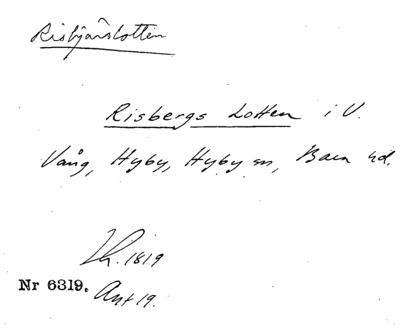 Risbjärslotten
Risbergs Lotten i V.
Vång, Hyby, Hyby sn, Bara hd.
Lh. 1819
Nr 6319. Ant 19.